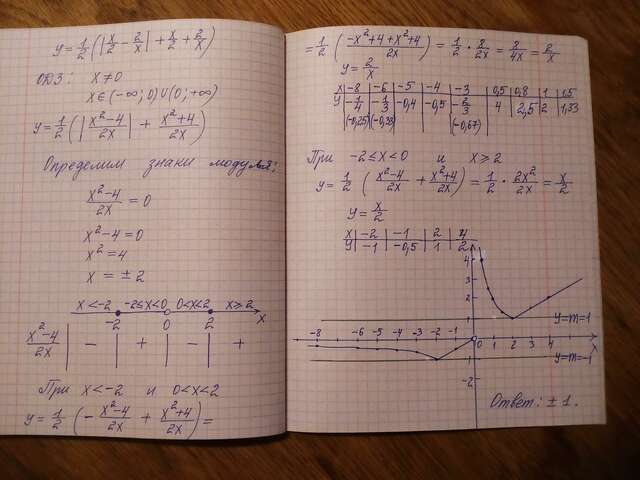 y = 1/2 (|x/2 - 2/x| + x/2 + 2/x)
ОДЗ: x ≠ 0
x ∈ (-∞; 0) ∪ (0; +∞)
y = 1/2 (|x²-4/2x| + x²+4/2x)
Определим знаки модуля:
x²-4/2x = 0
x²-4=0
x²=4
x = ±2
x<-2 -2≤x<0 0<x<2 x≥2
-2 0 2 x
x²-4/2x | - | + | - | +
При x<-2 и 0<x<2
y = 1/2 (- x²-4/2x + x²+4/2x) =
= 1/2 (-x²+4+x²+4/2x) = 1/2 · 8/2x = 8/4x = 2/x
y = 2/x
x -8 -6 -5 -4 -3 0,5 0,8 1 1,5
y -1/4 -1/3 -0,4 -0,5 -2/3 4 2,5 2 1,33
(-0,25) (-0,33) (-0,67)
При -2≤x<0 и x≥2
y = 1/2 (x²-4/2x + x²+4/2x) = 1/2 · 2x²/2x = x/2
y = x/2
x -2 -1 2 4
y -1 -0,5 1 2
4
3
2
1 y=m=1
-8 -6 -5 -4 -3 -2 -1 0 1 2 3 4 x
y=m=-1
-2
Ответ: ±1.